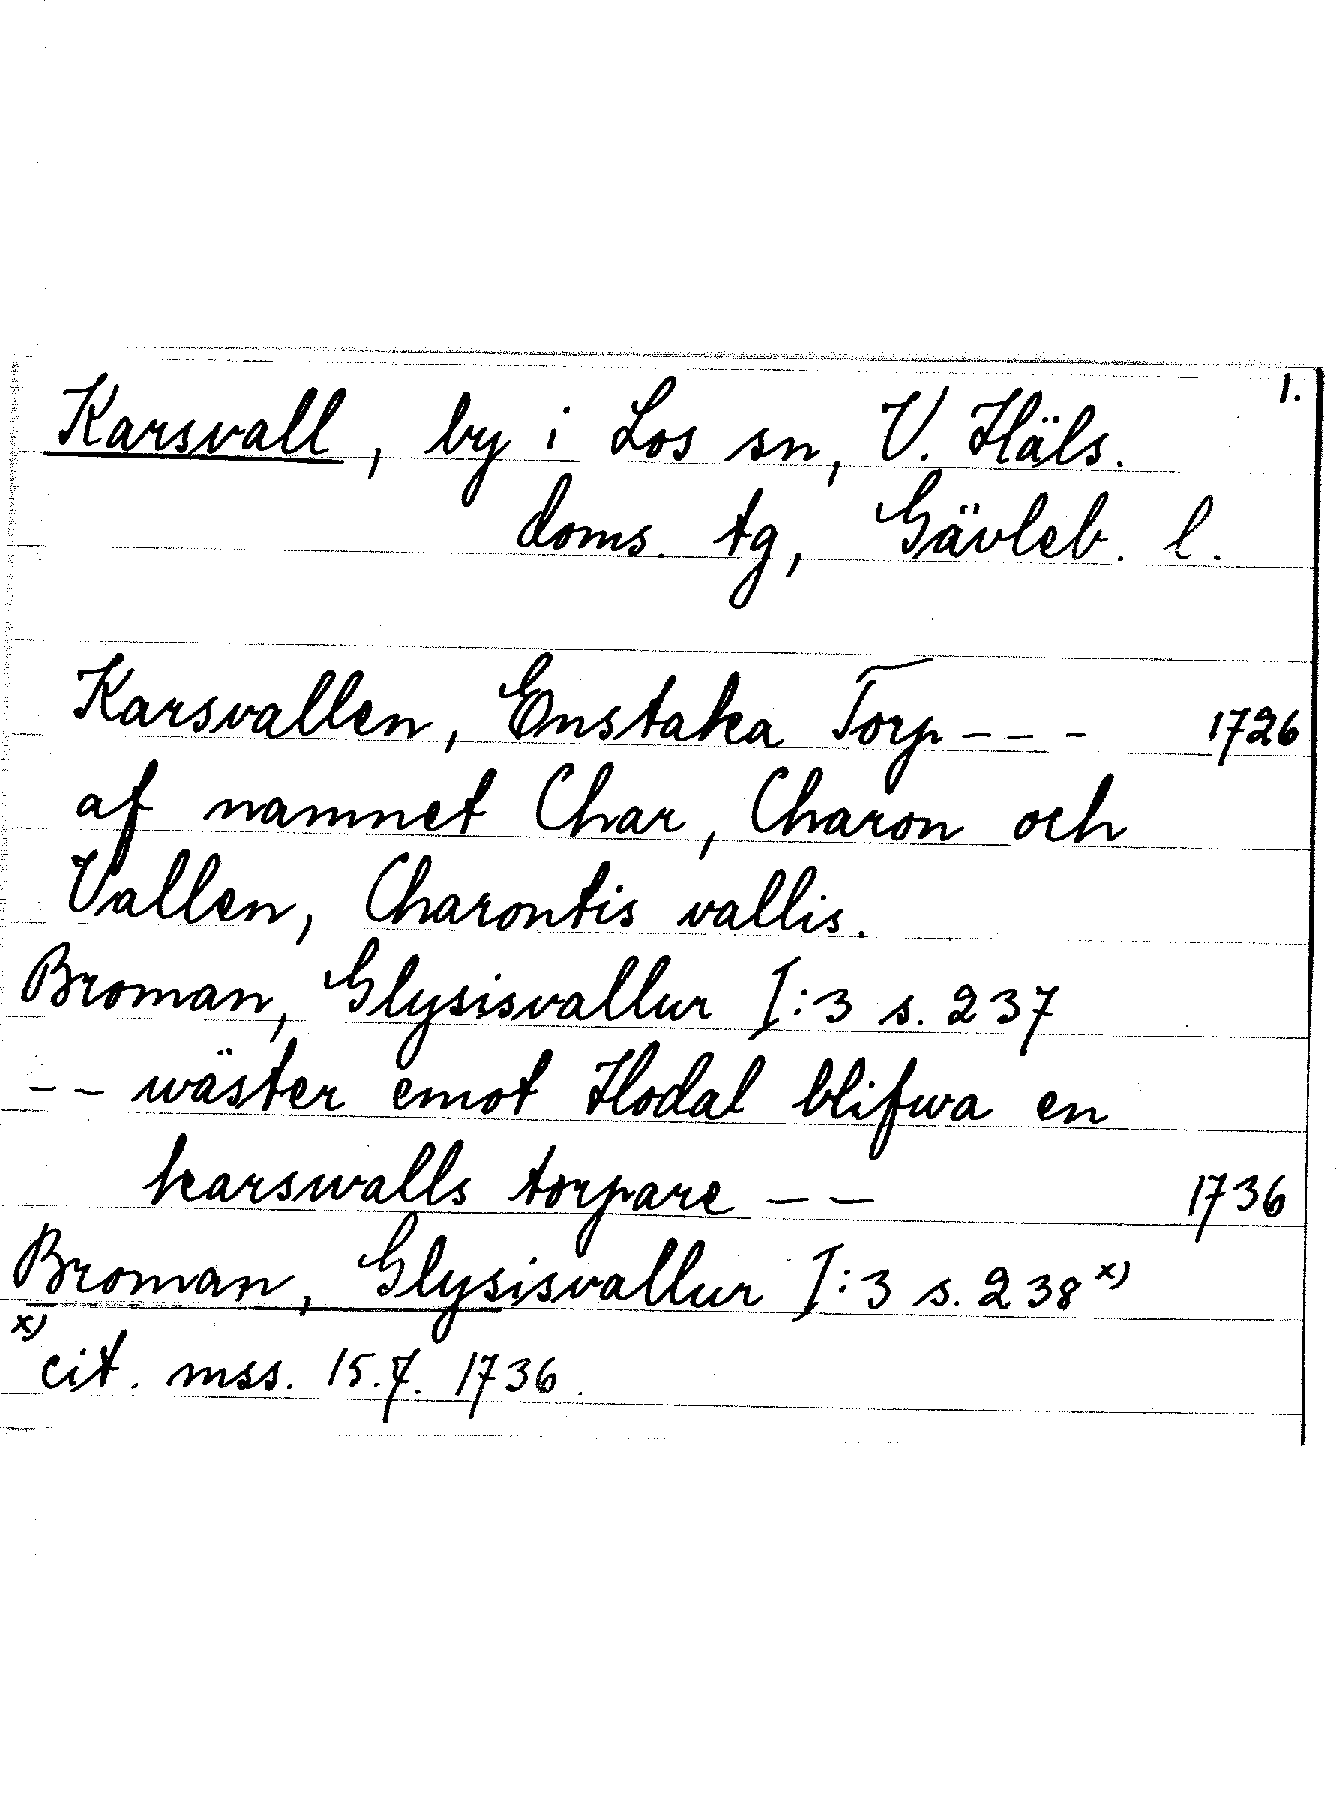 1.
Karsvall, by i Los sn, V. Häls.
doms. tg, Gävleb. l.
Karsvallen, Enstaka Torp - - - 1726
af namnet Char, Charon och
Vallen, Charontis vallis.
Broman, Glysisvallur I:3 s. 237
- - wäster emot Hodal blifwa en
karswalls torpare - - 1736
Broman, Glysisvallur I:3 s. 238 x)
x)
cit. mss. 15.7. 1736.